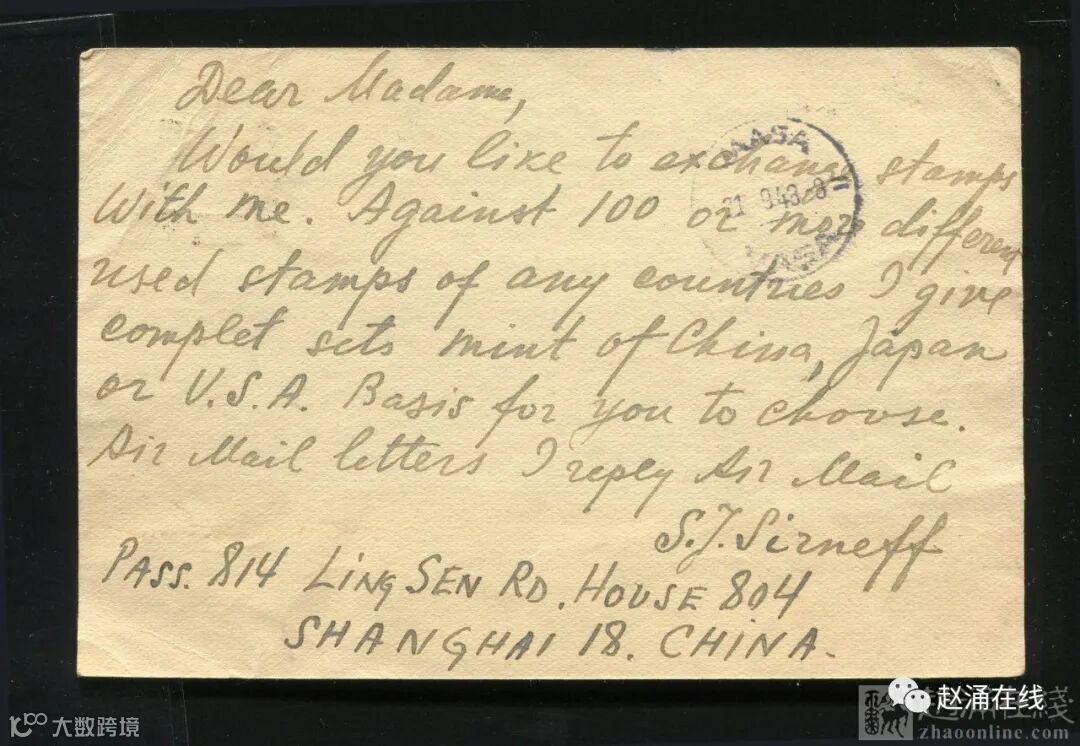 Dear Madame,
Would you like to exchange stamps
With me. Against 100 or more different
used stamps of any countries I give
complet sets mint of China, Japan
or U.S.A. Basis for you to choose.
Air Mail letters I reply Air Mail
S.J. Sirneff
PASS. 814 LING SEN RD. HOUSE 804
SHANGHAI 18. CHINA.
VAASA
21 9.48-8
VASA
大数跨境
赵涌在线
zhaoonline.com